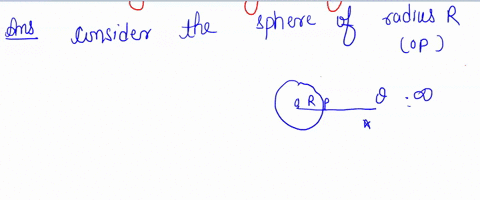 Ans consider the sphere of radius R
(OP)
O R P Q : ∞
A